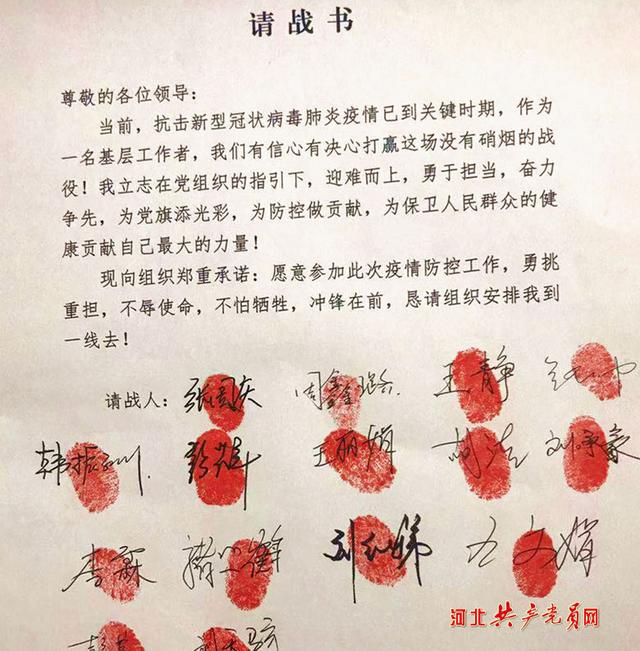 请战书
尊敬的各位领导：
当前，抗击新型冠状病毒肺炎疫情已到关键时期，作为
一名基层工作者，我们有信心有决心打赢这场没有硝烟的战
役！我立志在党组织的指引下，迎难而上，勇于担当，奋力
争先，为党旗添光彩，为防控做贡献，为保卫人民群众的健
康贡献自己最大的力量！
现向组织郑重承诺：愿意参加此次疫情防控工作，勇挑
重担，不辱使命，不怕牺牲，冲锋在前，恳请组织安排我到
一线去！
请战人：张国庆 周鑫璐 王静
王丽娟
李霖 刘红娣 王文娟
河北共产党员网